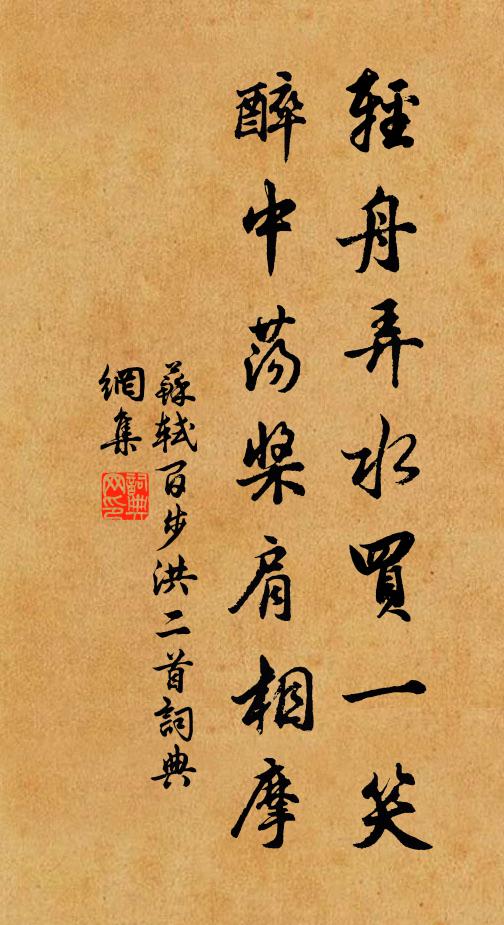 輕舟弄水買一笑
醉中荡槳肩相摩
蘇軾百步洪二首詞典
網集
詞典
网印